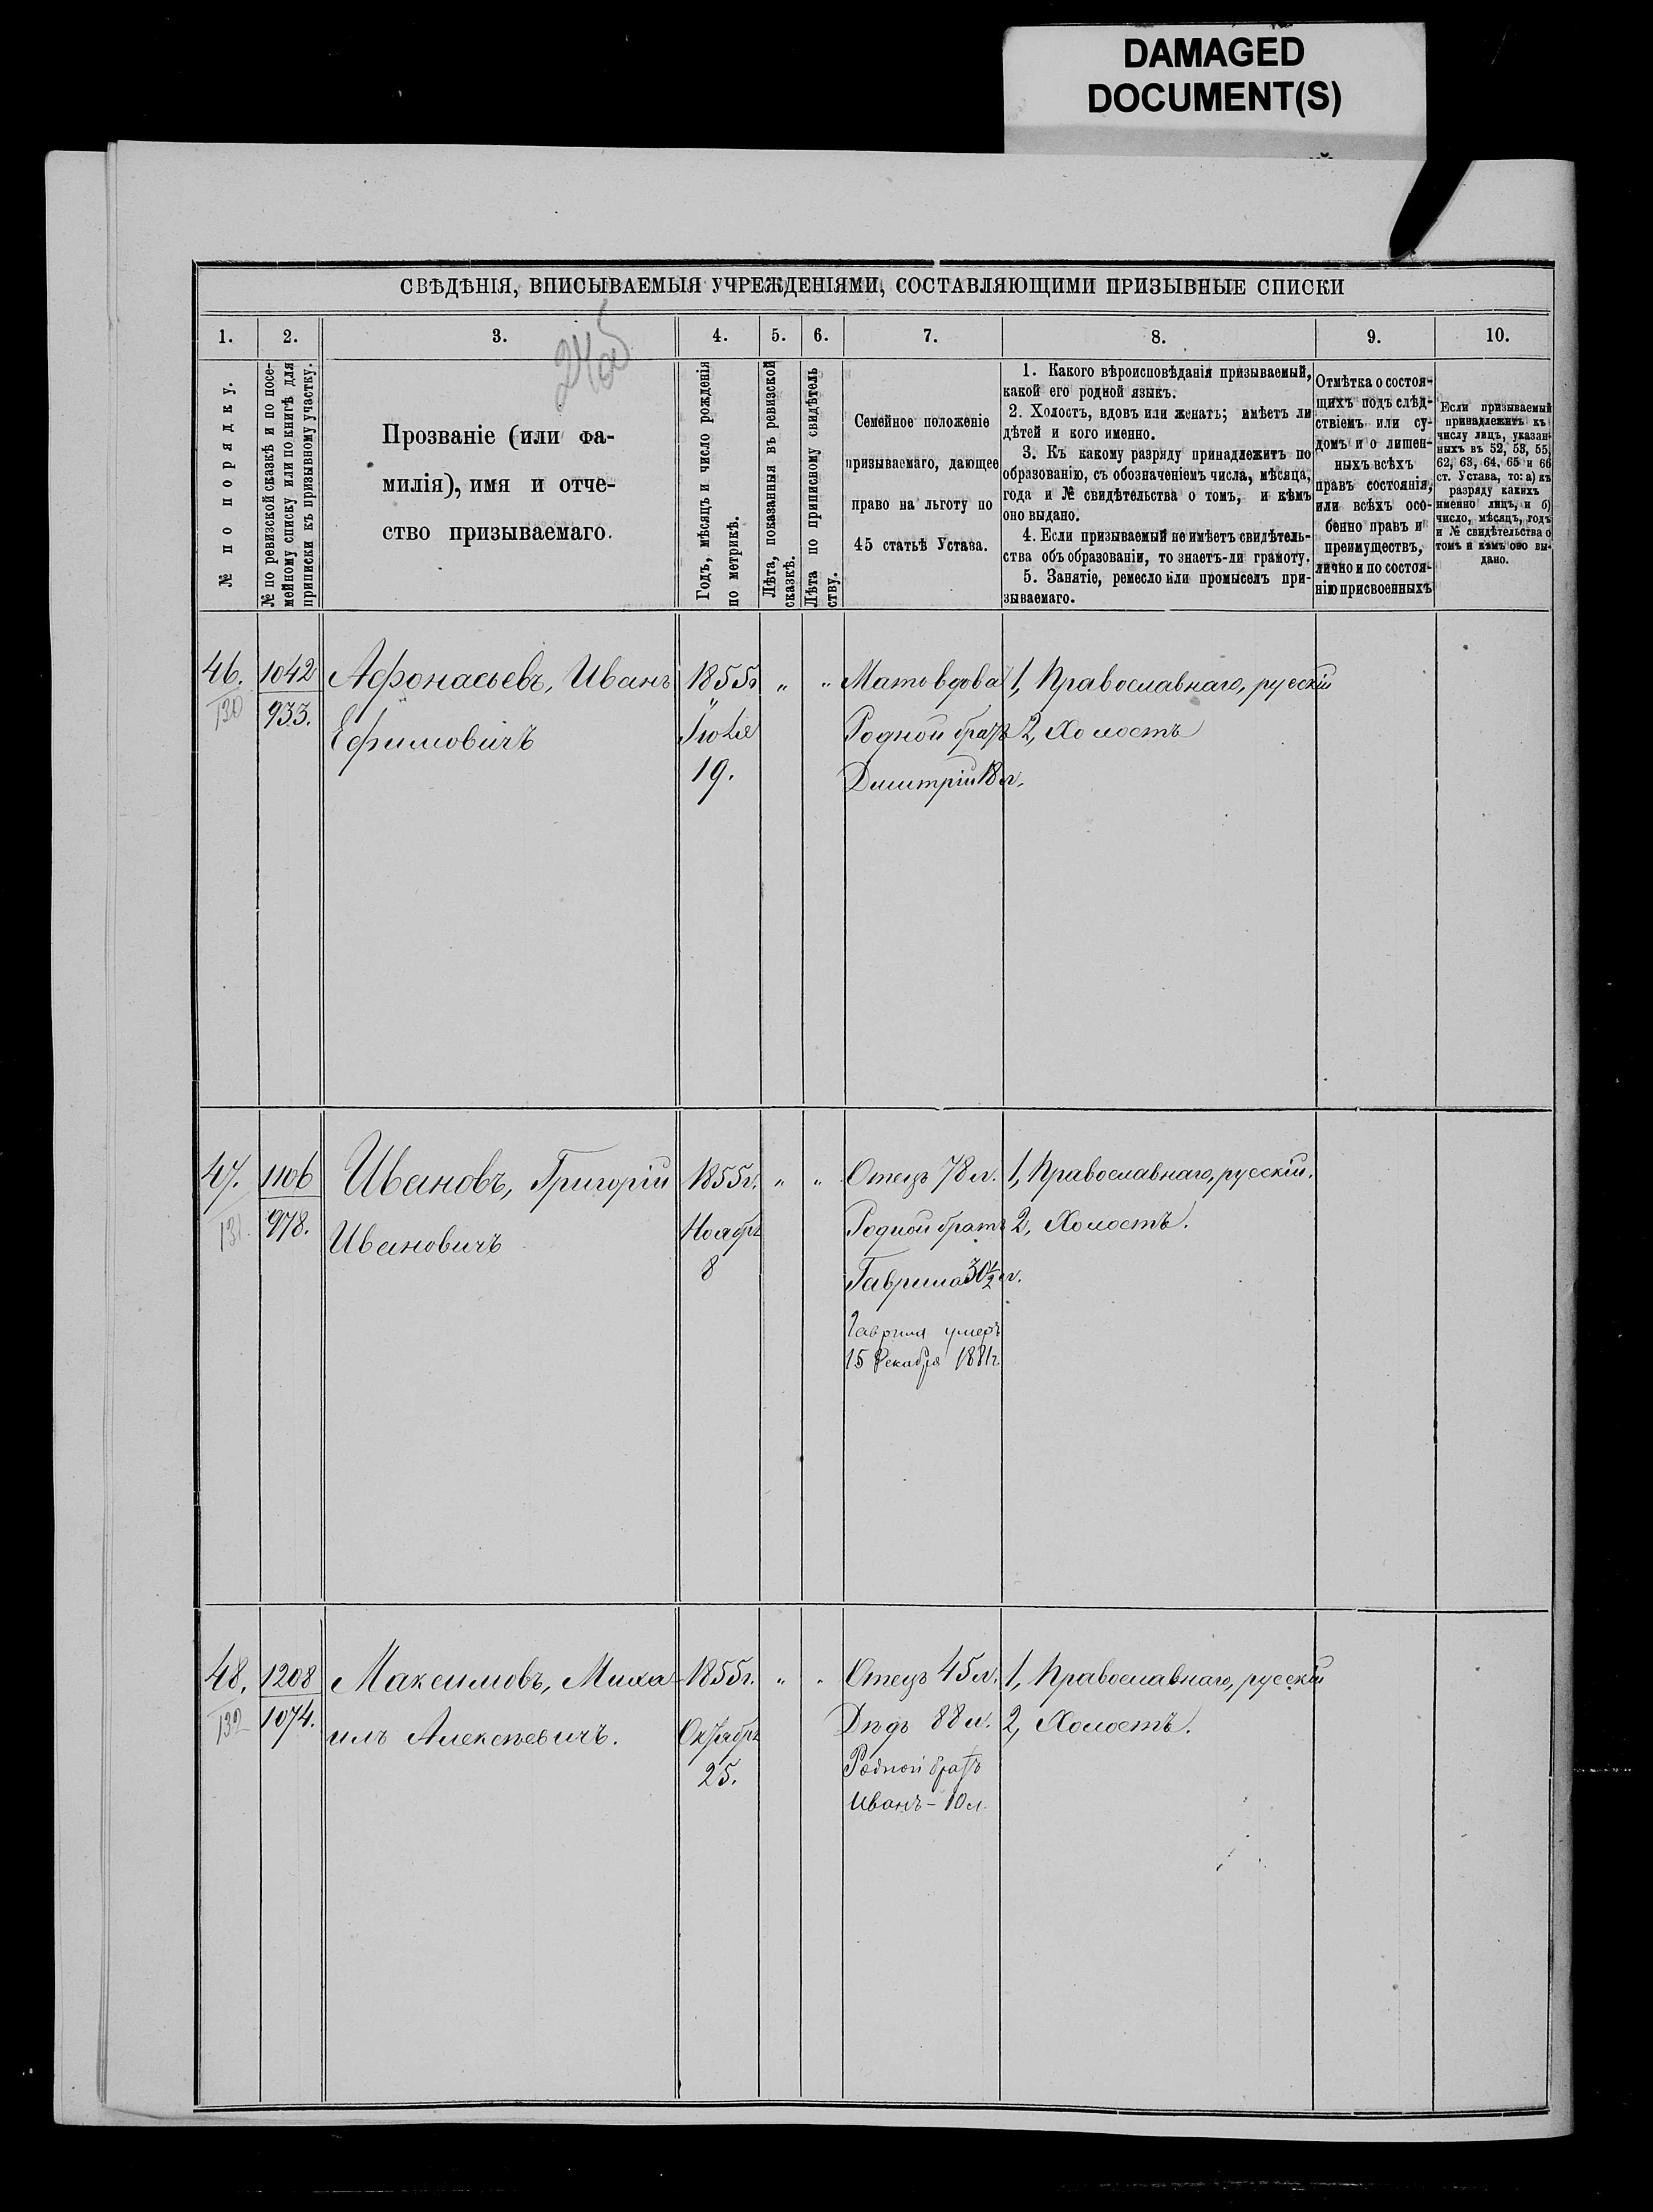 DAMAGED
DOCUMENT(S)
СВѢДѢНІЯ, ВПИСЫВАЕМЫЯ УЧРЕЖДЕНІЯМИ, СОСТАВЛЯЮЩИМИ ПРИЗЫВНЫЕ СПИСКИ
1. 2. 3. 4. 5. 6. 7. 8. 9. 10.
№ по порядку.
№ по ревизской сказкѣ и по посе-
мейному списку или по книгѣ для
приписки къ призывному участку.
Прозваніе (или фа-
милія), имя и отче-
ство призываемаго.
Годъ, мѣсяцъ и число рожденія
по метрикѣ.
Лѣта, показанныя въ ревизской
сказкѣ.
Лѣта по приписному свидѣтель
ству.
Семейное положеніе
призываемаго, дающее
право на льготу по
45 статьѣ Устава.
1. Какого вѣроисповѣданія призываемый,
какой его родной языкъ.
2. Холостъ, вдовъ или женатъ; имѣетъ ли
дѣтей и кого именно.
3. Къ какому разряду принадлежитъ по
образованію, съ обозначеніемъ числа, мѣсяца,
года и № свидѣтельства о томъ, и кѣмъ
оно выдано.
4. Если призываемый не имѣетъ свидѣтель-
ства объ образованіи, то знаетъ-ли грамоту.
5. Занятіе, ремесло или промыселъ при-
зываемаго.
Отмѣтка о состоя-
щихъ подъ слѣд-
ствіемъ или су-
домъ и о лишен-
ныхъ всѣхъ
правъ состоянія,
или всѣхъ осо-
бенно правъ и
преимуществъ,
лично и по состоя-
нію присвоенныхъ
Если призываемый
принадлежитъ къ
числу лицъ, указан-
ныхъ въ 52, 53, 55,
62, 63, 64, 65 и 66
ст. Устава, то: а) къ
разряду какихъ
именно лицъ, и б)
число, мѣсяцъ, годъ
и № свидѣтельства о
томъ и кѣмъ оно вы-
дано.
46. 1042 Афонасьевъ, Иванъ 1855г " " Мать вдова 1, Православнаго, русскій
130 933. Ефимовичъ Іюля Родной братъ 2, Холостъ
19. Димитрій 18 л.
47. 1106 Ивановъ, Григорій 1855г. " " Отецъ 78 л. 1, Православнаго, русскій.
131. 978. Ивановичъ Ноябрь Родной братъ 2, Холостъ.
8 Гаврила 30½ л.
Гаврила умеръ
15 декабря 1881г.
48. 1208 Максимовъ, Миха- 1855г. " " Отецъ 45 л. 1, Православнаго, русскій
132 1074. илъ Алексѣевичъ. Октябрь Дѣдъ 88 л. 2, Холостъ.
25. Родной братъ
Иванъ - 10 л.